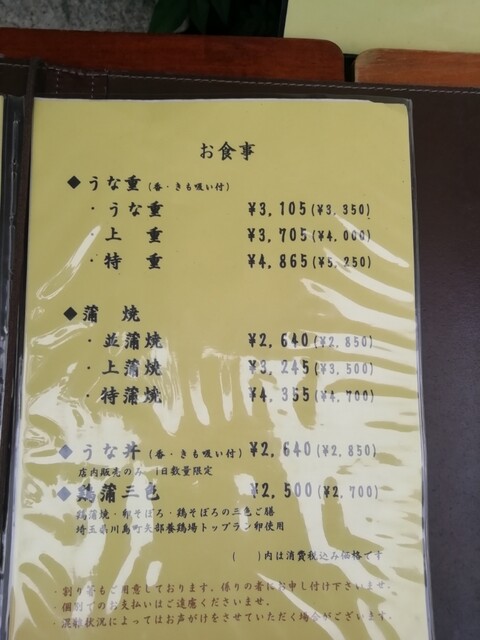 お食事
◆うな重(香・きも吸い付)
・うな重 ¥3,105(¥3,350)
・上 重 ¥3,705(¥4,000)
・特 重 ¥4,865(¥5,250)
◆蒲 焼
・並蒲焼 ¥2,640(¥2,850)
・上蒲焼 ¥3,245(¥3,500)
・特蒲焼 ¥4,355(¥4,700)
◆うな丼(香・きも吸い付) ¥2,640(¥2,850)
店内販売のみ 1日数量限定
◆鶏蒲三色 ¥2,500(¥2,700)
鶏蒲焼・卵そぼろ・鶏そぼろの三色ご膳
埼玉県川島町矢部養鶏場トップラン卵使用
( )内は消費税込み価格です
・割り箸もご用意しております。係りの者にお申し付け下さいませ。
・個別でのお支払いはご遠慮くださいませ。
・混雑状況によってはお声がけをさせていただく場合がございます。